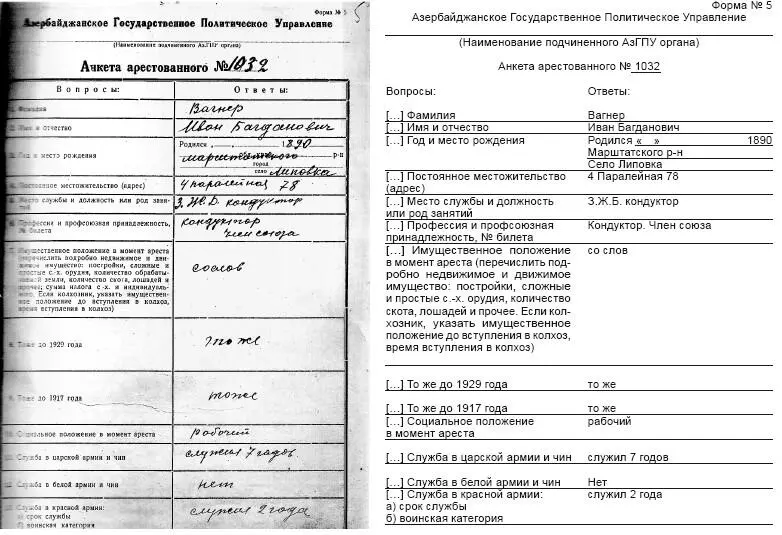 Форма № 5
5
Азербайджанское Государственное Политическое Управление
(Наименование подчиненного АзГПУ органа)
Анкета арестованного № 1032
Вопросы: Ответы:
Фамилия Вагнер
Имя и отчество Иван Багданович
Родился 1890
Год и место рождения марштатского р-н
город
село Липовка
Постоянное местожительство (адрес) 4 паралейная 78
Место службы и должность или род заня-
тий З.Ж.Б. кондуктор
Профессия и профсоюзная принадлежность, кондуктор
№ билета член союза
Имущественное положение в момент ареста
(перечислить подробно недвижимое и дви-
жимое имущество: постройки, сложные и
простые с.-х. орудия, количество обрабаты-
ваемой земли, количество скота, лошадей и
прочее; сумма налога с.-х. и индивидуаль-
ного. Если колхозник, указать имуществен-
ное положение до вступления в колхоз,
время вступления в колхоз)
сослов
Тоже до 1929 года тоже
Тоже до 1917 года тоже
Социальное положение в момент ареста рабочий
Служба в царской армии и чин служил 7 годов
Служба в белой армии и чин нет
Служба в красной армии: служил 2 года
а) срок службы
б) воинская категория
Форма № 5
Азербайджанское Государственное Политическое Управление
(Наименование подчиненного АзГПУ органа)
Анкета арестованного № 1032
Вопросы: Ответы:
[...] Фамилия Вагнер
[...] Имя и отчество Иван Багданович
[...] Год и место рождения Родился « » 1890
Марштатского р-н
Село Липовка
[...] Постоянное местожительство 4 Паралейная 78
(адрес)
[...] Место службы и должность З.Ж.Б. кондуктор
или род занятий
[...] Профессия и профсоюзная Кондуктор. Член союза
принадлежность, № билета
[...] Имущественное положение со слов
в момент ареста (перечислить под-
робно недвижимое и движимое
имущество: постройки, сложные
и простые с.-х. орудия, количество
скота, лошадей и прочее. Если кол-
хозник, указать имущественное
положение до вступления в колхоз,
время вступления в колхоз)
[...] То же до 1929 года то же
[...] То же до 1917 года то же
[...] Социальное положение рабочий
в момент ареста
[...] Служба в царской армии и чин служил 7 годов
[...] Служба в белой армии и чин Нет
[...] Служба в красной армии: служил 2 года
а) срок службы
б) воинская категория